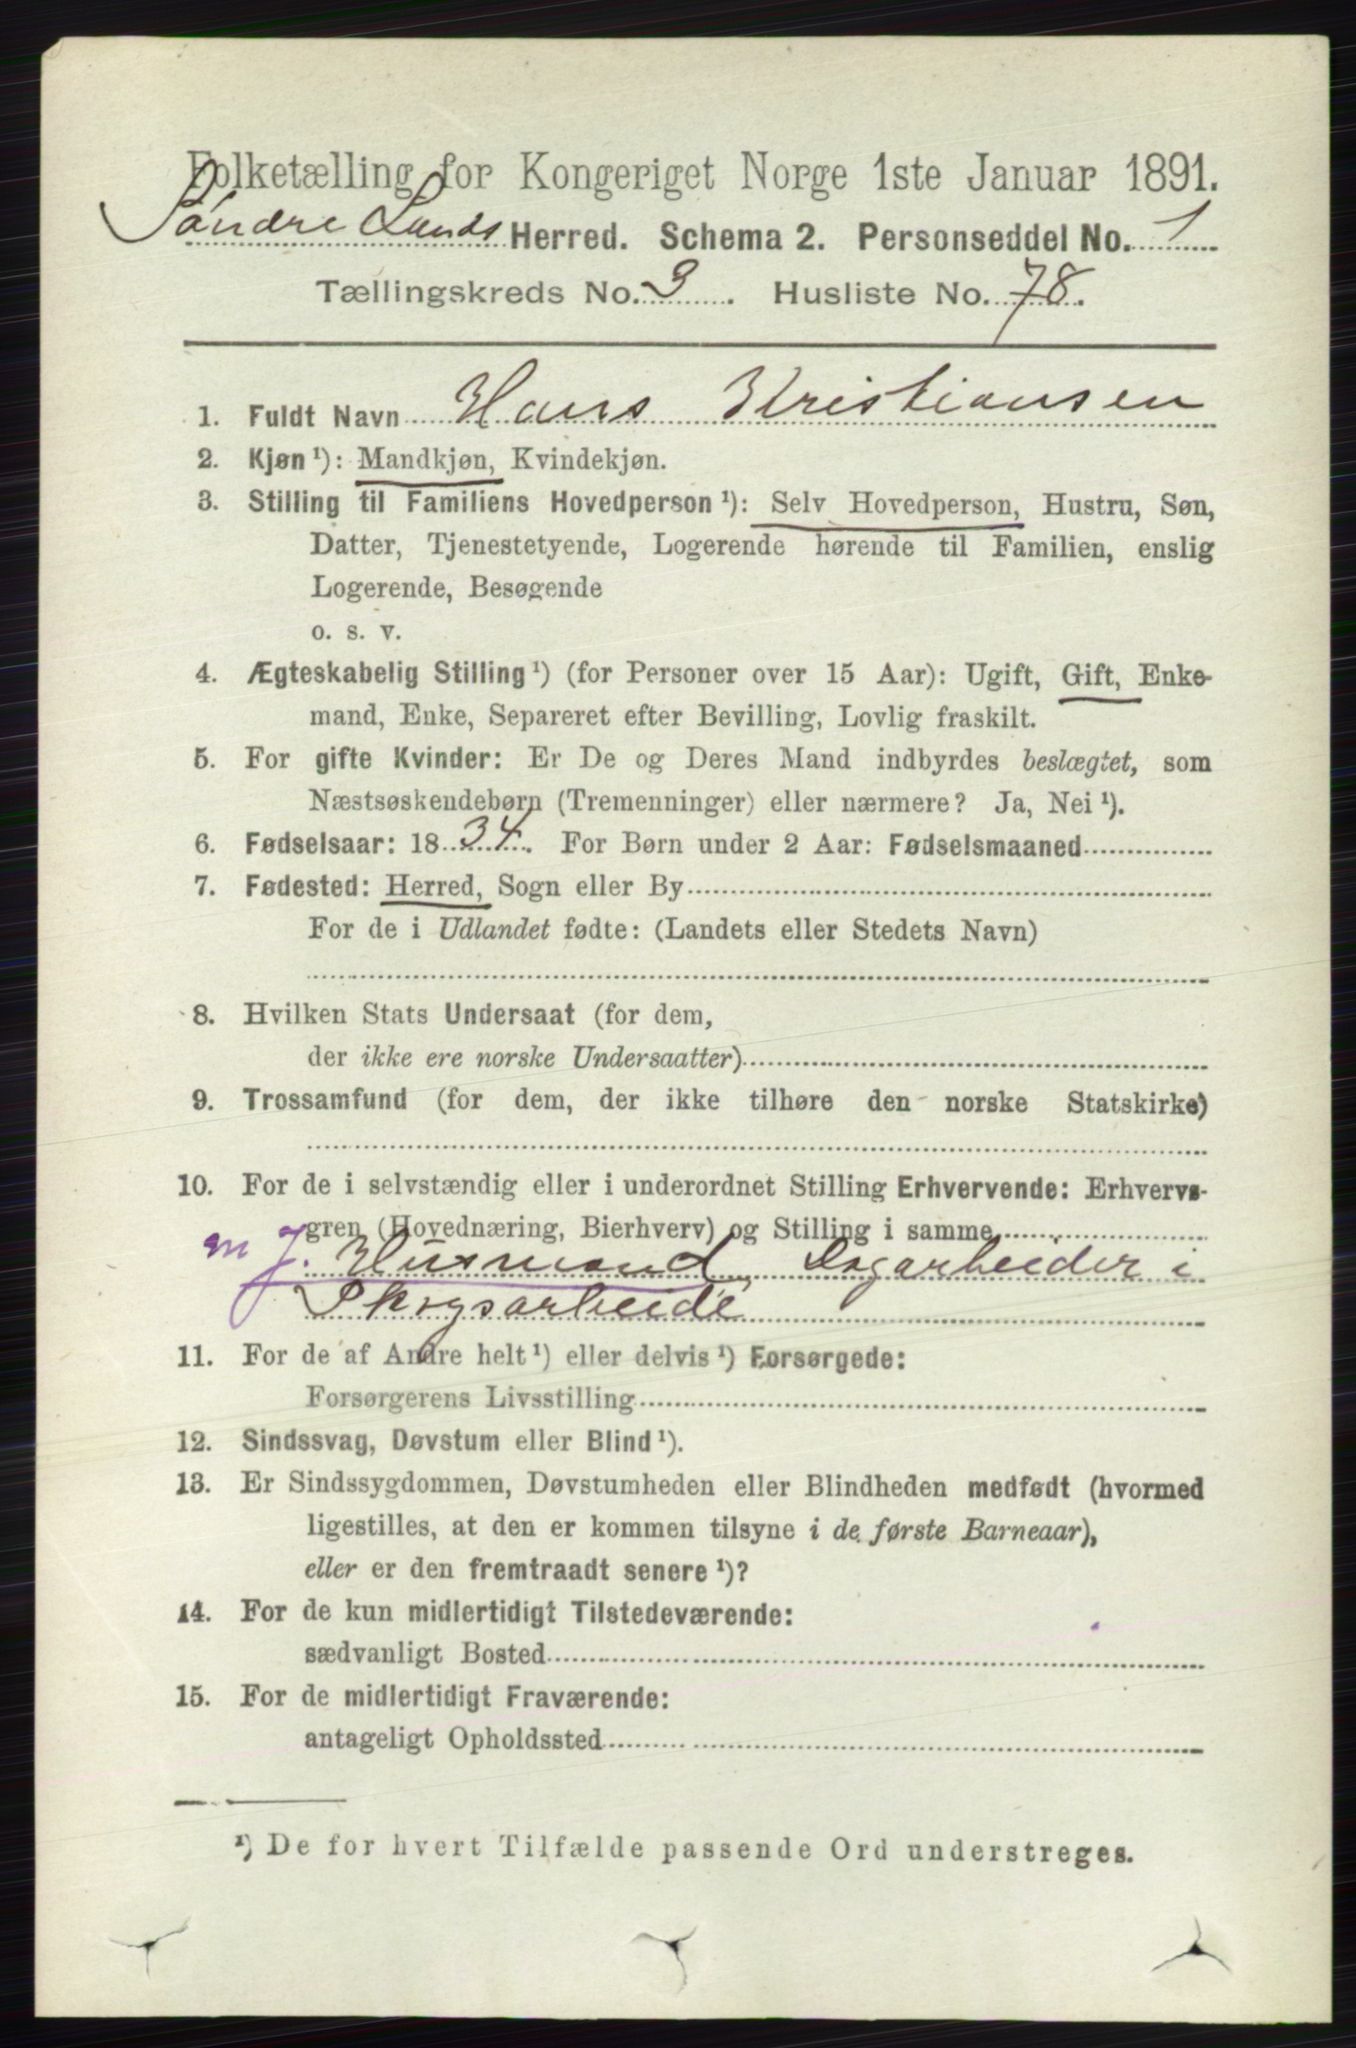 Folketælling for Kongeriget Norge 1ste Januar 1891.
Søndre Lands Herred. Schema 2. Personseddel No. 1
Tællingskreds No. 3. Husliste No. 78.
1. Fuldt Navn Hans Kristiansen
2. Kjøn¹): Mandkjøn, Kvindekjøn.
3. Stilling til Familiens Hovedperson¹): Selv Hovedperson, Hustru, Søn,
Datter, Tjenestetyende, Logerende hørende til Familien, enslig
Logerende, Besøgende
o. s. v.
4. Ægteskabelig Stilling¹) (for Personer over 15 Aar): Ugift, Gift, Enke-
mand, Enke, Separeret efter Bevilling, Lovlig fraskilt.
5. For gifte Kvinder: Er De og Deres Mand indbyrdes beslægtet, som
Næstsøskendebørn (Tremenninger) eller nærmere? Ja, Nei¹).
6. Fødselsaar: 1834. For Børn under 2 Aar: Fødselsmaaned
7. Fødested: Herred, Sogn eller By
For de i Udlandet fødte: (Landets eller Stedets Navn)
8. Hvilken Stats Undersaat (for dem,
der ikke ere norske Undersaatter)
9. Trossamfund (for dem, der ikke tilhøre den norske Statskirke)
10. For de i selvstændig eller i underordnet Stilling Erhvervende: Erhvervs-
gren (Hovednæring, Bierhverv) og Stilling i samme
m J. Husmand, Dagarbeider i
Skogsarbeide
11. For de af Andre helt¹) eller delvis¹) Forsørgede:
Forsørgerens Livsstilling
12. Sindssvag, Døvstum eller Blind¹).
13. Er Sindssygdommen, Døvstumheden eller Blindheden medfødt (hvormed
ligestilles, at den er kommen tilsyne i de første Barneaar),
eller er den fremtraadt senere¹)?
14. For de kun midlertidigt Tilstedeværende:
sædvanligt Bosted
15. For de midlertidigt Fraværende:
antageligt Opholdssted
¹) De for hvert Tilfælde passende Ord understreges.